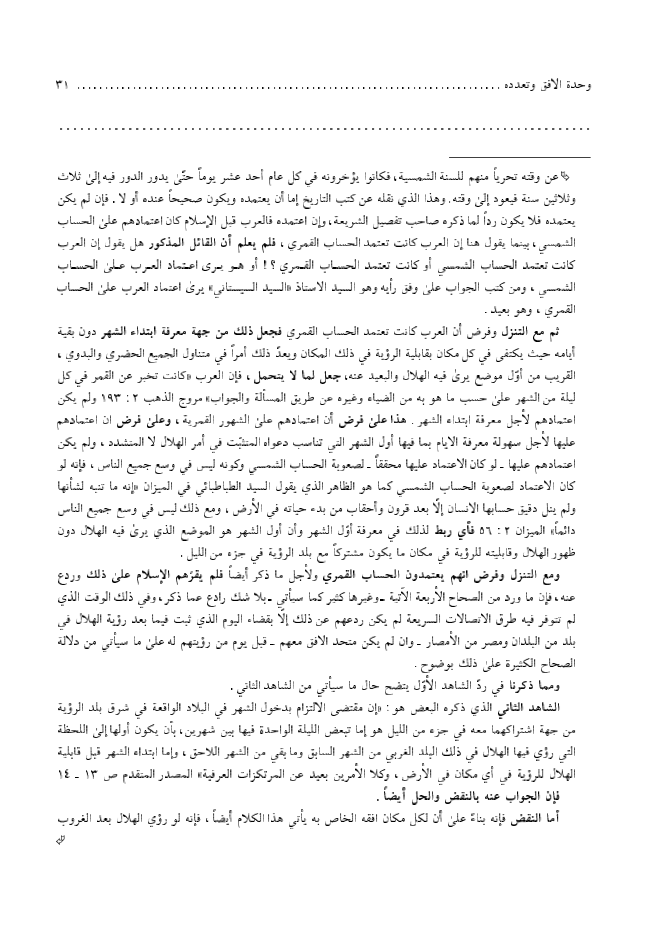 وحدة الافق وتعدده ........................................................................ ٣١
........................................................................
عن وقته تحرياً منهم للسنة الشمسية، فكانوا يؤخرونه في كل عام أحد عشر يوماً حتّى يدور الدور فيه إلىٰ ثلاث
وثلاثين سنة فيعود إلىٰ وقته. وهذا الذي نقله عن كتب التاريخ إما أن يعتمده ويكون صحيحاً عنده أو لا . فإن لم يكن
يعتمده فلا يكون رداً لما ذكره صاحب تفصيل الشريعة، وإن اعتمده فالعرب قبل الإسلام كان اعتمادهم علىٰ الحساب
الشمسي، بينما يقول هنا إن العرب كانت تعتمد الحساب القمري ، فلم يعلم أن القائل المذكور هل يقول إن العرب
كانت تعتمد الحساب الشمسي أو كانت تعتمد الحساب القمري ؟ ! أو هـو يـرى اعتماد العرب علىٰ الحساب
الشمسي ، ومن كتب الجواب علىٰ وفق رأيه وهو السيد الاستاذ «السيد السيستاني» يرىٰ اعتماد العرب علىٰ الحساب
القمري ، وهو بعيد .
ثم مع التنزل وفرض أن العرب كانت تعتمد الحساب القمري فجعل ذلك من جهة معرفة ابتداء الشهر دون بقية
أيامه حيث يكتفى في كل مكان بقابلية الرؤية في ذلك المكان ويعدّ ذلك أمراً في متناول الجميع الحضري والبدوي ،
القريب من أوّل موضع يرىٰ فيه الهلال والبعيد عنه، جعل لما لا يتحمل ، فإن العرب «كانت تخبر عن القمر في كل
ليلة من الشهر علىٰ حسب ما هو به من الضياء وغيره عن طريق المسألة والجواب» مروج الذهب ٢ : ١٩٣ ولم يكن
اعتمادهم لأجل معرفة ابتداء الشهر . هذا علىٰ فرض أن اعتمادهم علىٰ الشهور القمرية ، وعلىٰ فرض ان اعتمادهم
عليها لأجل سهولة معرفة الايام بما فيها أول الشهر التي تناسب دعواه المتثبّت في أمر الهلال لا المتشدد ، ولم يكن
اعتمادهم عليها ـ لو كان الاعتماد عليها محققاً ـ لصعوبة الحساب الشمسي وكونه ليس في وسع جميع الناس ، فإنه لو
كان الاعتماد لصعوبة الحساب الشمسي كما هو الظاهر الذي يقول السيد الطباطبائي في الميزان «إنه ما تنبه لشأنها
ولم ينل دقيق حسابها الانسان إلّا بعد قرون وأحقاب من بدء حياته في الأرض ، ومع ذلك ليس في وسع جميع الناس
دائماً» الميزان ٢ : ٥٦ فأي ربط لذلك في معرفة أوّل الشهر وأن أول الشهر هو الموضع الذي يرىٰ فيه الهلال دون
ظهور الهلال وقابليته للرؤية في مكان ما يكون مشتركاً مع بلد الرؤية في جزء من الليل .
ومع التنزل وفرض انهم يعتمدون الحساب القمري ولأجل ما ذكر أيضاً فلم يقرّهم الإسلام علىٰ ذلك وردع
عنه، فإن ما ورد من الصحاح الأربعة الآتية ـ وغيرها كثير كما سيأتي ـ بلا شك رادع عما ذكر، وفي ذلك الوقت الذي
لم تتوفر فيه طرق الاتصالات السريعة لم يكن ردعهم عن ذلك إلّا بقضاء اليوم الذي ثبت فيما بعد رؤية الهلال في
بلد من البلدان ومصر من الأمصار ـ وان لم يكن متحد الافق معهم ـ قبل يوم من رؤيتهم له علىٰ ما سيأتي من دلالة
الصحاح الكثيرة علىٰ ذلك بوضوح .
ومما ذكرنا في ردّ الشاهد الأوّل يتضح حال ما سيأتي من الشاهد الثاني .
الشاهد الثاني الذي ذكره البعض هو : «إن مقتضى الالتزام بدخول الشهر في البلاد الواقعة في شرق بلد الرؤية
من جهة اشتراكهما معه في جزء من الليل هو إما تبعض الليلة الواحدة فيها بين شهرين، بأن يكون أولها إلىٰ اللحظة
التي رؤي فيها الهلال في ذلك البلد الغربي من الشهر السابق وما بقي من الشهر اللاحق ، وإما ابتداء الشهر قبل قابلية
الهلال للرؤية في أي مكان في الأرض ، وكلا الأمرين بعيد عن المرتكزات العرفية» المصدر المتقدم ص ١٣ ـ ١٤
فإن الجواب عنه بالنقض والحل أيضاً .
أما النقض فإنه بناءً علىٰ أن لكل مكان افقه الخاص به يأتي هذا الكلام أيضاً ، فإنه لو رؤي الهلال بعد الغروب